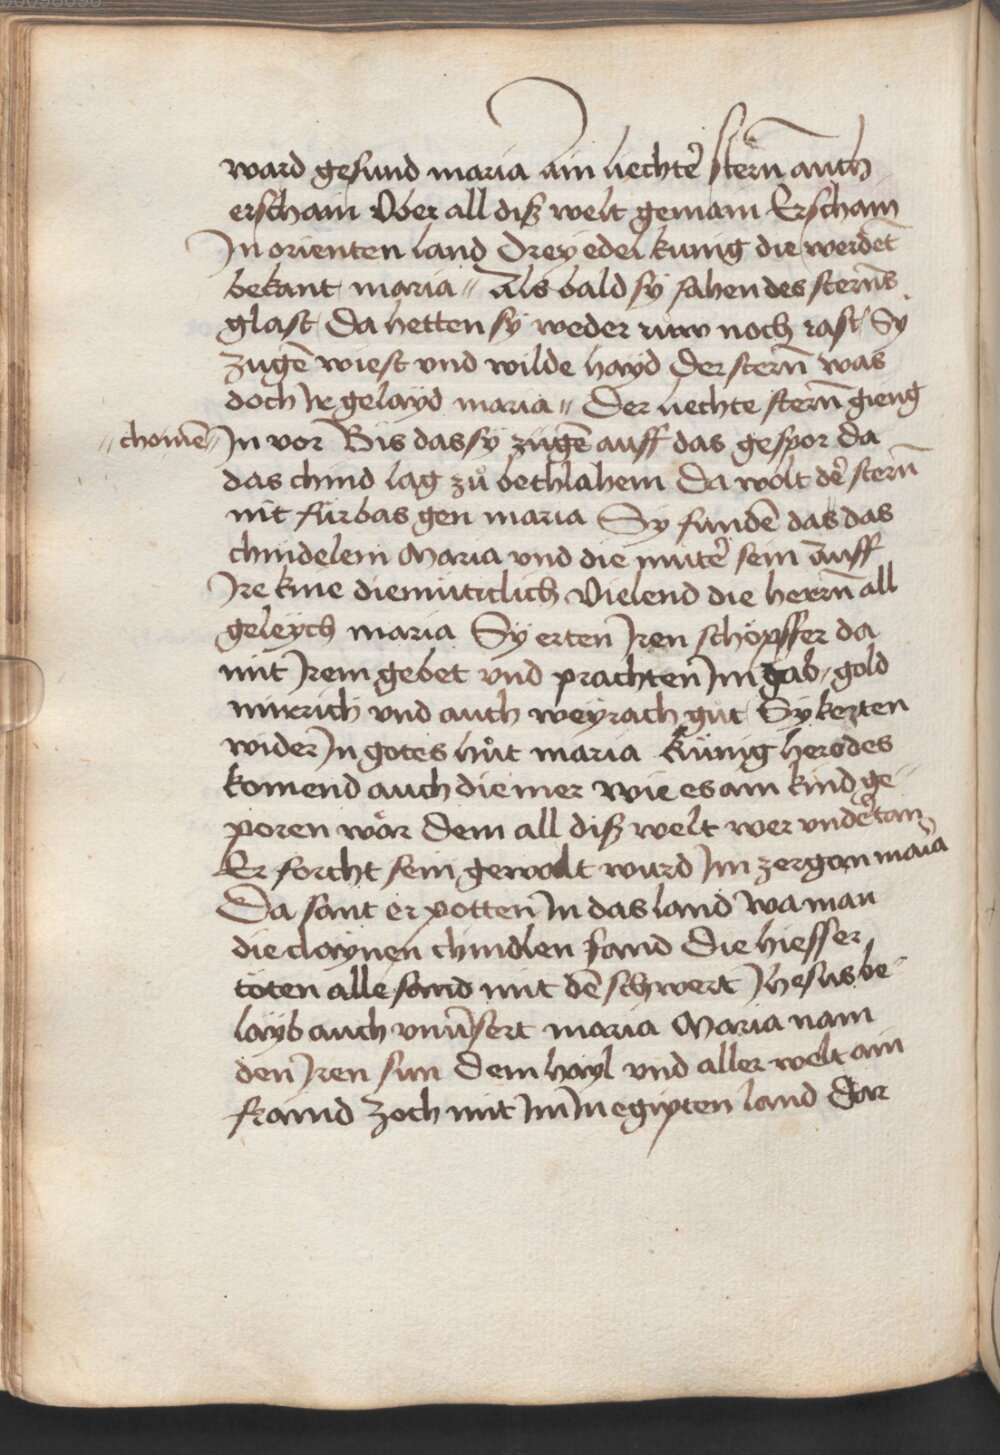 ward gesund maria Ain liechter̄ stern̄ auch
erschain Vber all diß welt gemain Erscham
In orienten land Drey edel kunig die werdēt
bekant maria〃 Als bald sÿ sahen des sterns̄
glast Da hetten sÿ weder ruw noch rast Sy
zugē wiest vnd wilde hayd Der stern̄ was
doch Ir gelaÿd maria〃 Der liechte stern̄ gieng
〃chomē〃 In vor Bis das sy zugē auff das gespor Da
das chind lag zů bethlahem Da wolt dē stern̄
nit fürbas gen maria Sy fundē das das
chindelein Maria vnd die mutē sein auff
Ire knie diemüticlich Vielend die herrn̄ all
geleÿch maria Sÿ erten Iren schöpffer da
mit Irem gebet vnd prachten Im gab gold
mirrich vnd auch weÿrach gůt Sÿ kerten
wider In gotes hůt maria Künig herodes
komend auch die mer wie es ain kind ge-
poren wär Dem all diß welt wer vndētan
Er forcht sein gewolt wurd Im zergan maīa
Da sant er potten In das land wa man
die claÿnen chindlen fand Die hiess er
töten alle sand mit dē schwert Jhesus be-
laÿb auch vnuſert maria Maria nam
den Iren sun Dem haÿl vnd aller welt ain
fraind Zoch mit Im In egipten land Dar